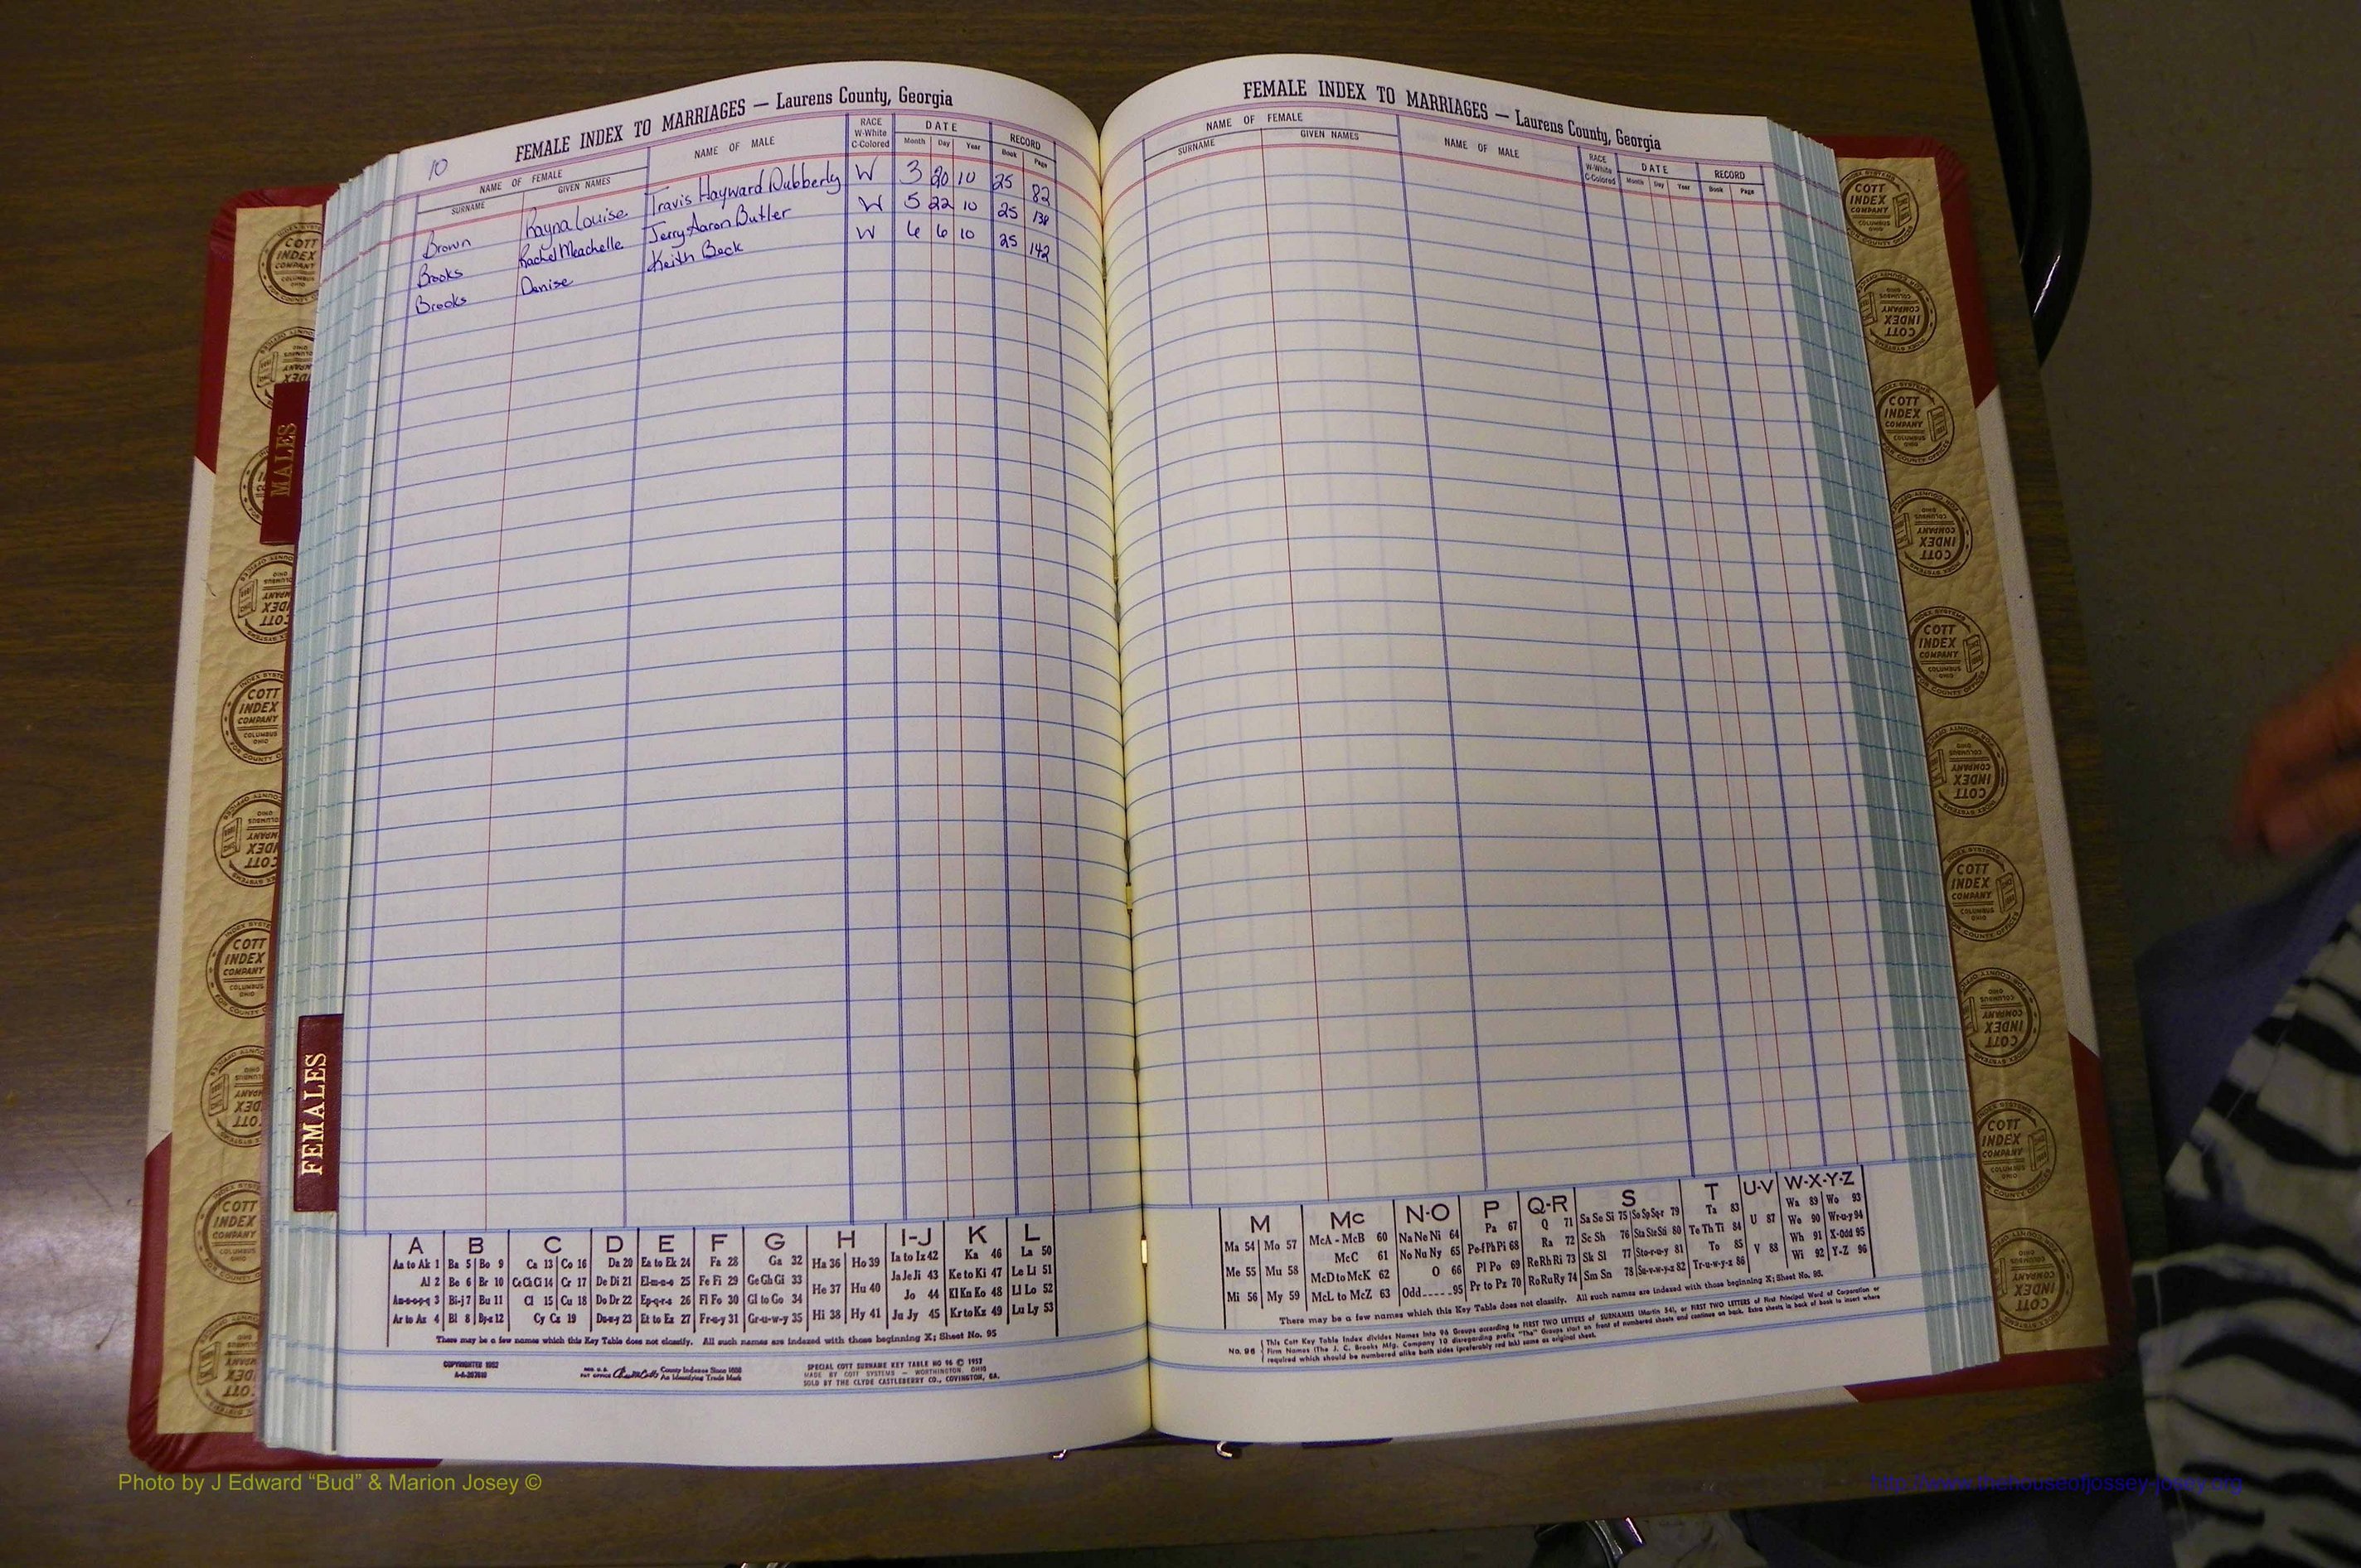 10
FEMALE INDEX TO MARRIAGES — Laurens County, Georgia
NAME OF FEMALE
SURNAME GIVEN NAMES
NAME OF MALE
RACE
W-White
C-Colored
DATE
Month Day Year
RECORD
Book Page
Brown Rayna Louise Travis Hayward Dubberly W 3 20 10 25 82
Brooks Rachel Meachelle Jerry Aaron Butler W 5 22 10 25 138
Brooks Denise Keith Beck W 6 6 10 25 142
MALES
FEMALES
A B C D E F G H I-J K L
Aa to Ak 1 Ba 5 Bo 9 Ca 13 Co 16 Da 20 Ea to Ek 24 Fa 28 Ga 32 Ha 36 Ho 39 Ia to Iz 42 Ka 46 La 50
Al 2 Be 6 Br 10 Ce Ch Ci 14 Cr 17 De Di 21 El-m-n-o 25 Fe Fi 29 Ge Gh Gi 33 He 37 Hu 40 Ja Je Ji 43 Ke to Ki 47 Le Li 51
An-o-p-q 3 Bi-j 7 Bu 11 Cl 15 Cu 18 Do Dr 22 Ep-q-r-s 26 Fl Fo 30 Gl to Go 34 Hi 38 Hy 41 Jo 44 Kl Kn Ko 48 Ll Lo 52
Ar to Az 4 Bl 8 By-z 12 Cy Cz 19 Du-w-y 23 Et to Ez 27 Fr-u-y 31 Gr-u-w-y 35 Ju Jy 45 Kr to Kz 49 Lu Ly 53
There may be a few names which this Key Table does not classify. All such names are indexed with those beginning X; Sheet No. 95
COPYRIGHTED 1952
County Indexes Since 1888
An Identifying Trade Mark
SPECIAL COTT SURNAME KEY TABLE NO 96 © 1957
MADE BY COTT SYSTEMS — WORTHINGTON, OHIO
SOLD BY THE CLYDE CASTLEBERRY CO., COVINGTON, GA.
FEMALE INDEX TO MARRIAGES — Laurens County, Georgia
NAME OF FEMALE
SURNAME GIVEN NAMES
NAME OF MALE
RACE
W-White
C-Colored
DATE
Month Day Year
RECORD
Book Page
M Mc N-O P Q-R S T U-V W-X-Y-Z
Ma 54 Mo 57 McA - McB 60 Na Ne Ni 64 Pa 67 Q 71 Sa Se Si 75 So Sp Sq-r 79 Ta 83 U 87 Wa 89 Wo 93
Me 55 Mu 58 McC 61 No Nu Ny 65 Pe-f Ph Pi 68 Ra 72 Sc Sh 76 Sta Ste Sti 80 Te Th Ti 84 V 88 We 90 Wr-u-y 94
Mi 56 My 59 McD to McK 62 O 66 Pl Po 69 Re Rh Ri 73 Sk Sl 77 Sto-r-u-y 81 To 85 Wh 91 X-Odd 95
McL to McZ 63 Odd 95 Pr to Pz 70 Ro Ru Ry 74 Sm Sn 78 Su-v-w-y-z 82 Tr-u-w-y-z 86 Wi 92 Y-Z 96
There may be a few names which this Key Table does not classify. All such names are indexed with those beginning X; Sheet No. 95.
No. 96 This Cott Key Table Index divides Names into 96 Groups according to FIRST TWO LETTERS of SURNAMES (Martin 54), or FIRST TWO LETTERS of First Principal Word of Corporation or
Firm Names (The J. C. Brooks Mfg. Company 10 disregarding prefix "The" Groups start on front of numbered sheets and continue on back. Extra sheets in back of book to insert where
required which should be numbered alike both sides (preferably red ink) same as original sheet.
COTT
INDEX
COMPANY
COLUMBUS
OHIO
Photo by J Edward “Bud” & Marion Josey ©
http://www.thehouseofjossey-josey.org